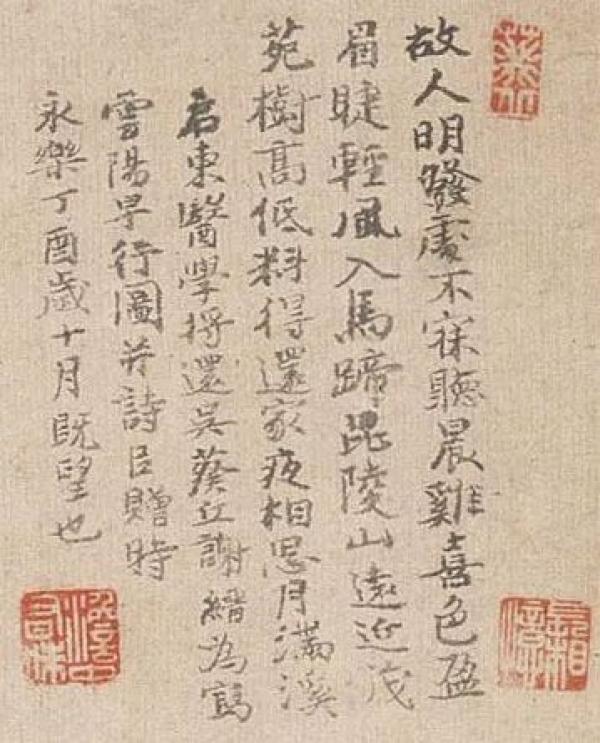 故人明發處不寐聽晨雞喜色盈
眉睫輕風入馬蹄毘陵山遠近茂
苑樹高低料得還家夜相思月滿溪
君東醫學將還吳葵丘謝縉為寫
雲陽早行圖并詩㠯贈時
永樂丁酉歲十月既望也